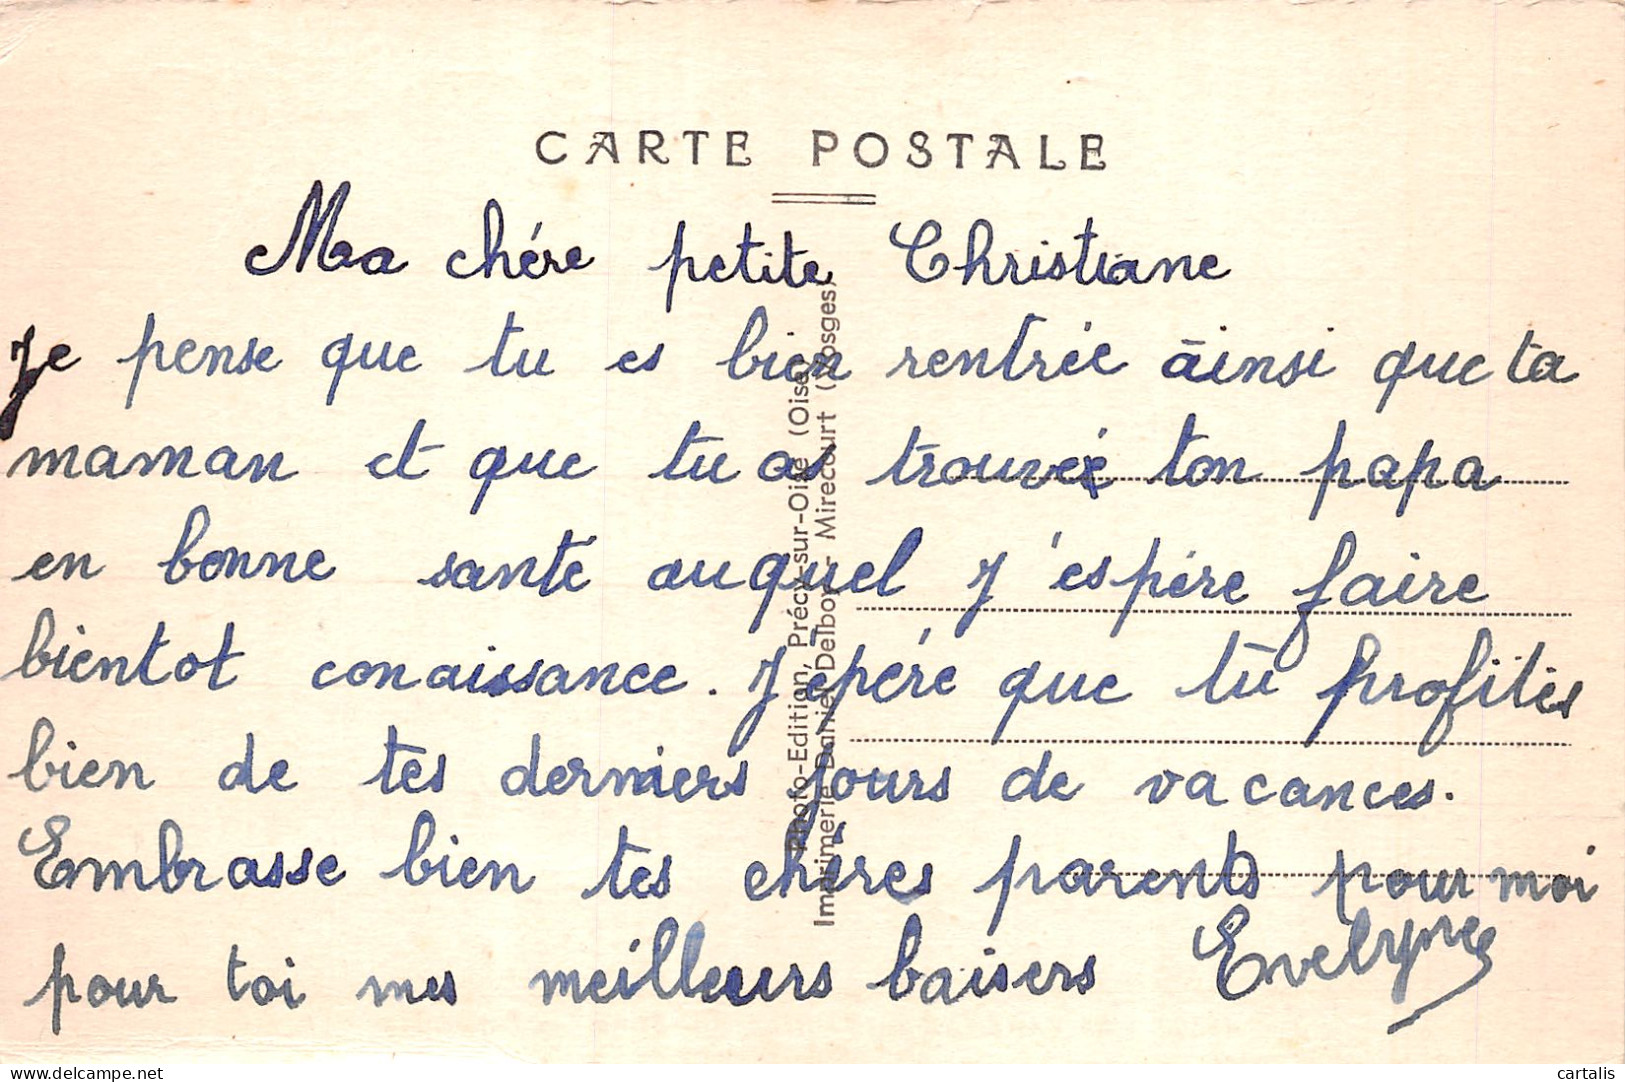 CARTE POSTALE
Ma chére petite Christiane
Je pense que tu es bien rentrée ainsi que ta
maman et que tu as trouvé ton papa
en bonne santé auquel j'espére faire
bientot conaissance. J'épére que tu profites
bien de tes derniers jours de vacances.
Embrasse bien tes chéres parents pour moi
pour toi mes meilleurs baisers Evelyne
Photo-Edition, Précy-sur-Oise (Oise)
Imprimerie Daniel Delboy - Mirecourt (Vosges)
www.delcampe.net
cartalis